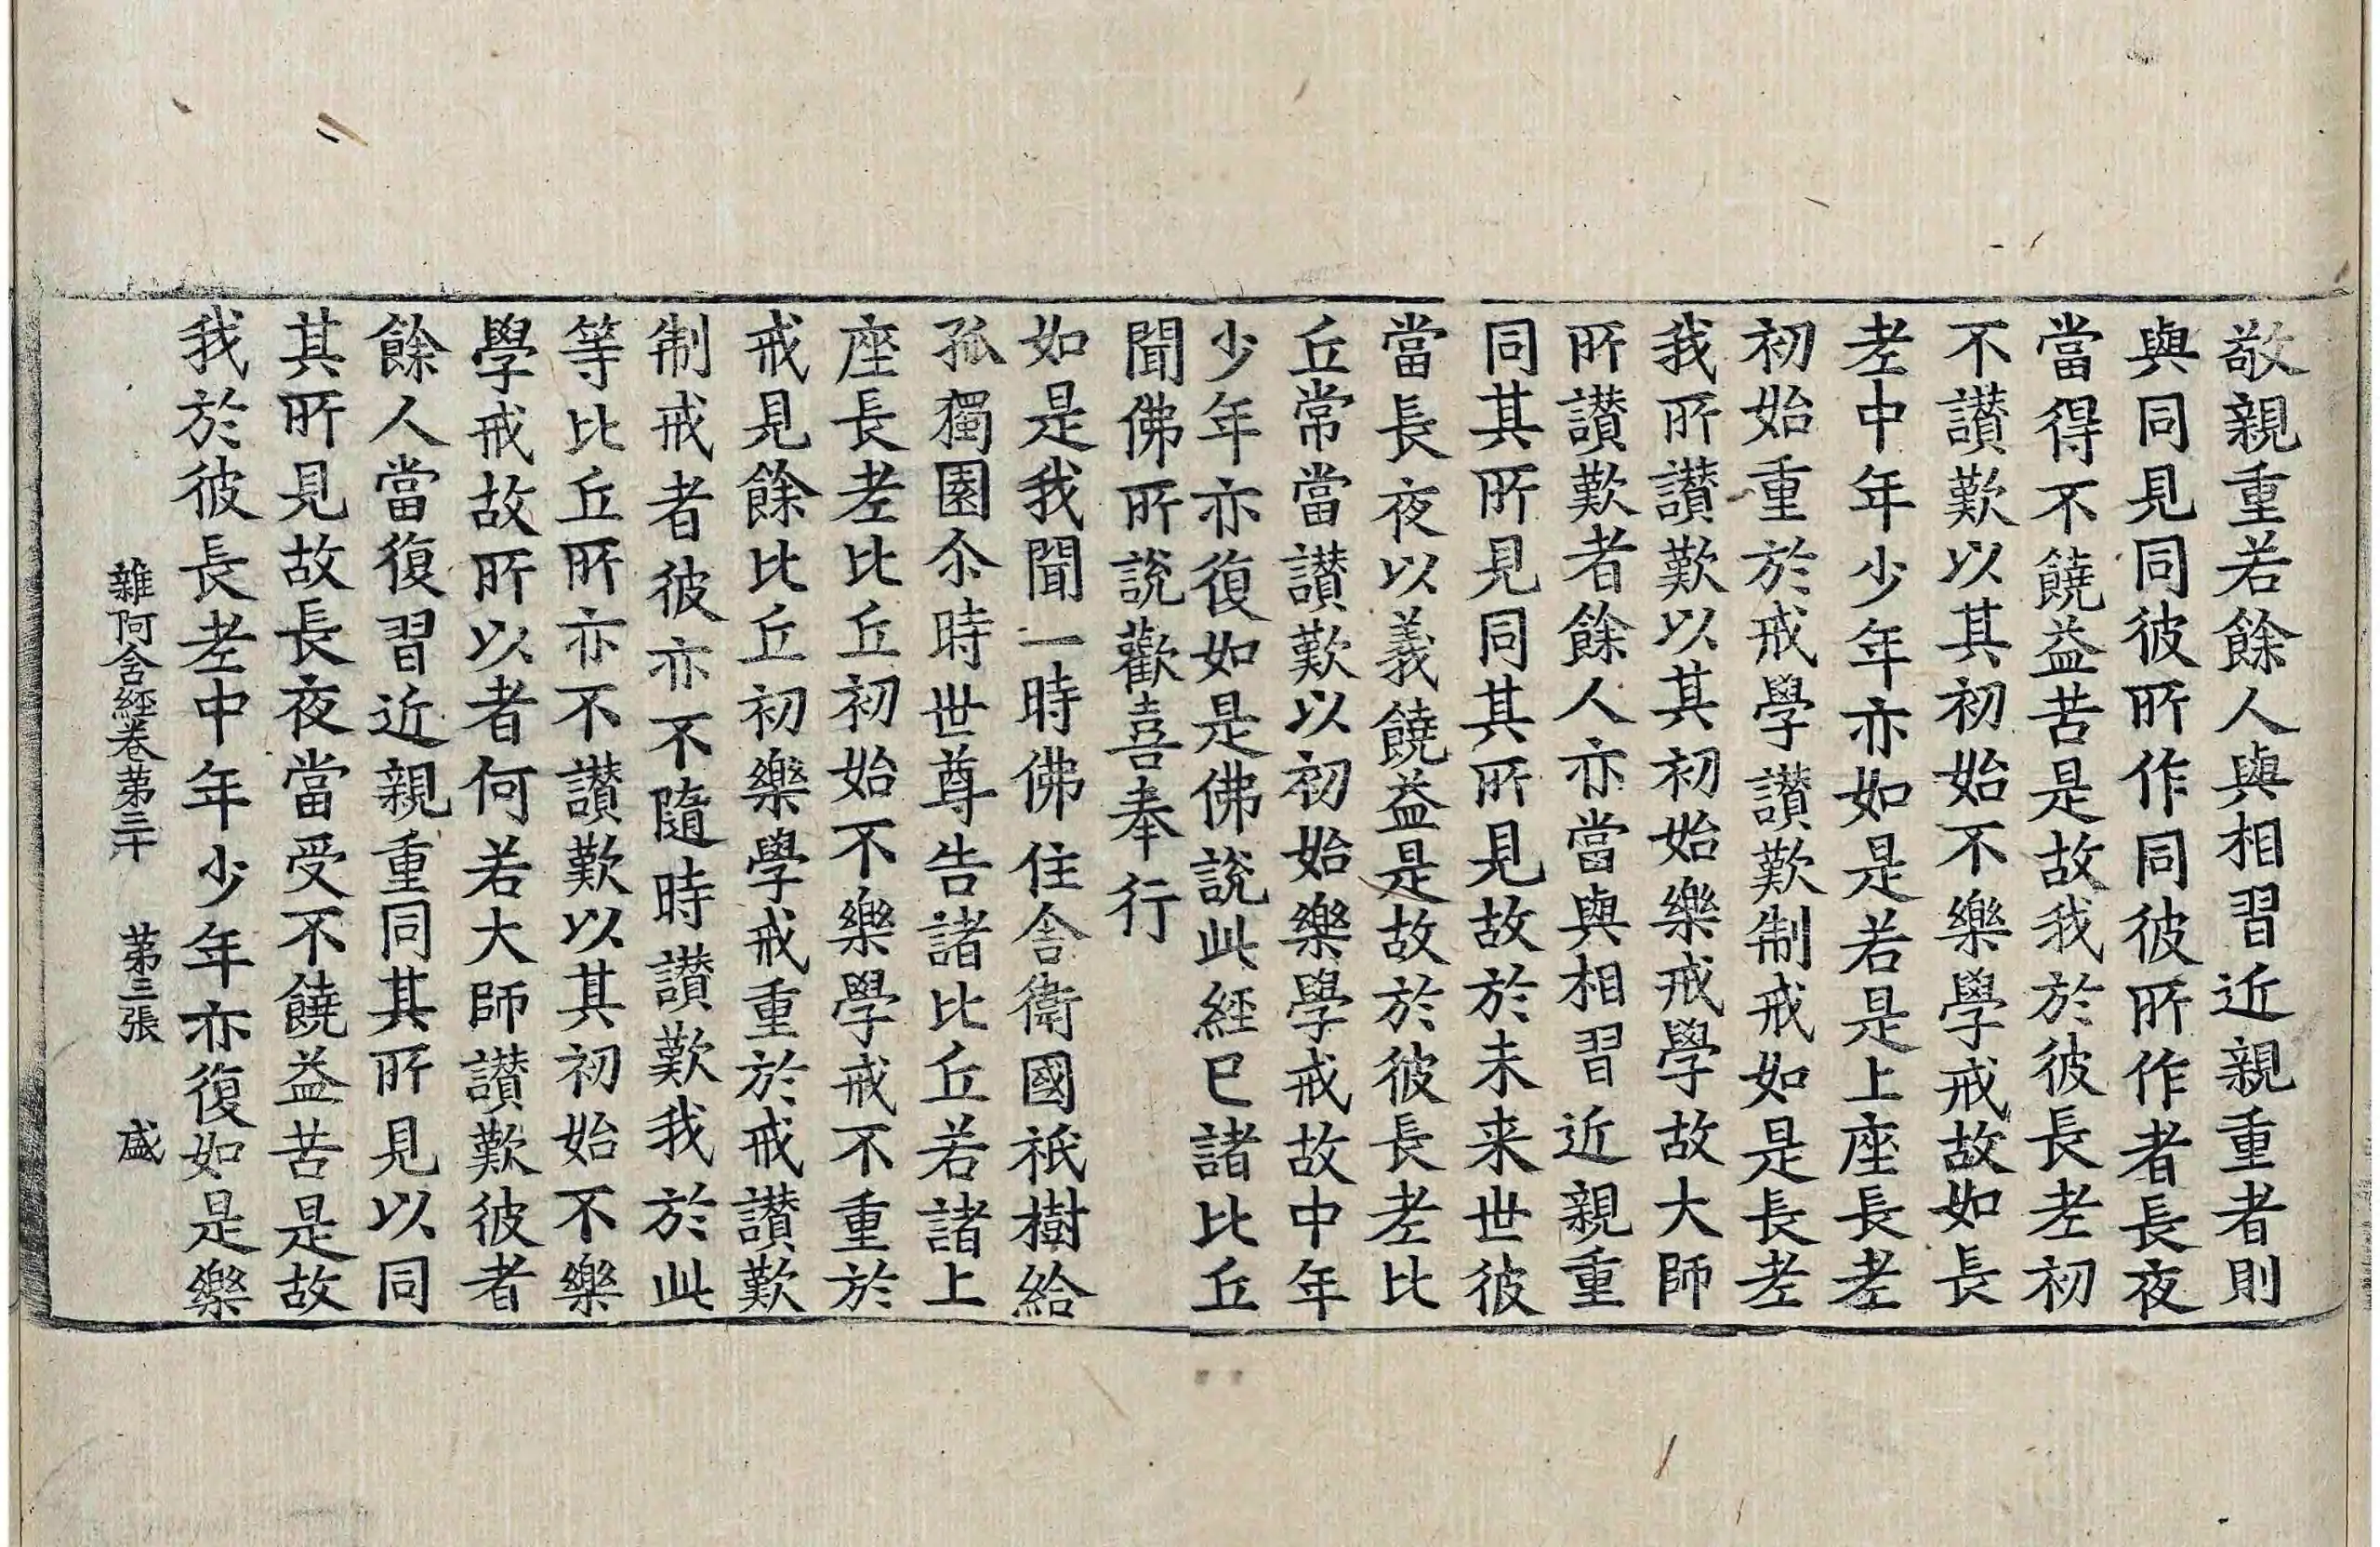 敬親重若餘人與相習近親重者則
與同見同彼所作同彼所作者長夜
當得不饒益苦是故我於彼長老初
不讃歎以其初始不樂學戒故如長
老中年少年亦如是若是上座長老
初始重於戒學讃歎制戒如是長老
我所讃歎以其初始樂戒學故大師
所讃歎者餘人亦當與相習近親重
同其所見同其所見故於未来世彼
當長夜以義饒益是故於彼長老比
丘常當讃歎以初始樂學戒故中年
少年亦復如是佛說此經已諸比丘
聞佛所說歡喜奉行
如是我聞一時佛住舍衛國祇樹給
孤獨園尒時世尊告諸比丘若諸上
座長老比丘初始不樂學戒不重於
戒見餘比丘初樂學戒重於戒讃歎
制戒者彼亦不隨時讃歎我於此
等比丘所亦不讃歎以其初始不樂
學戒故所以者何若大師讃歎彼者
餘人當復習近親重同其所見以同
其所見故長夜當受不饒益苦是故
我於彼長老中年少年亦復如是樂
雜阿含經卷第三十 第三張 盛